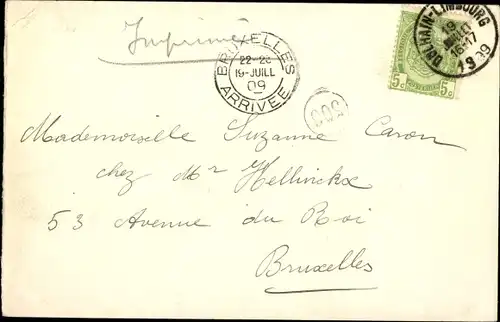 Imprimé
BRUXELLES
22-23
19-JUILL
09
ARRIVÉE
DOLHAIN-LIMBOURG
19
JUIL
16-17
5c 5c
Mademoiselle Suzanne Caron
chez Mr Hellinckx
53 Avenue du Roi
Bruxelles